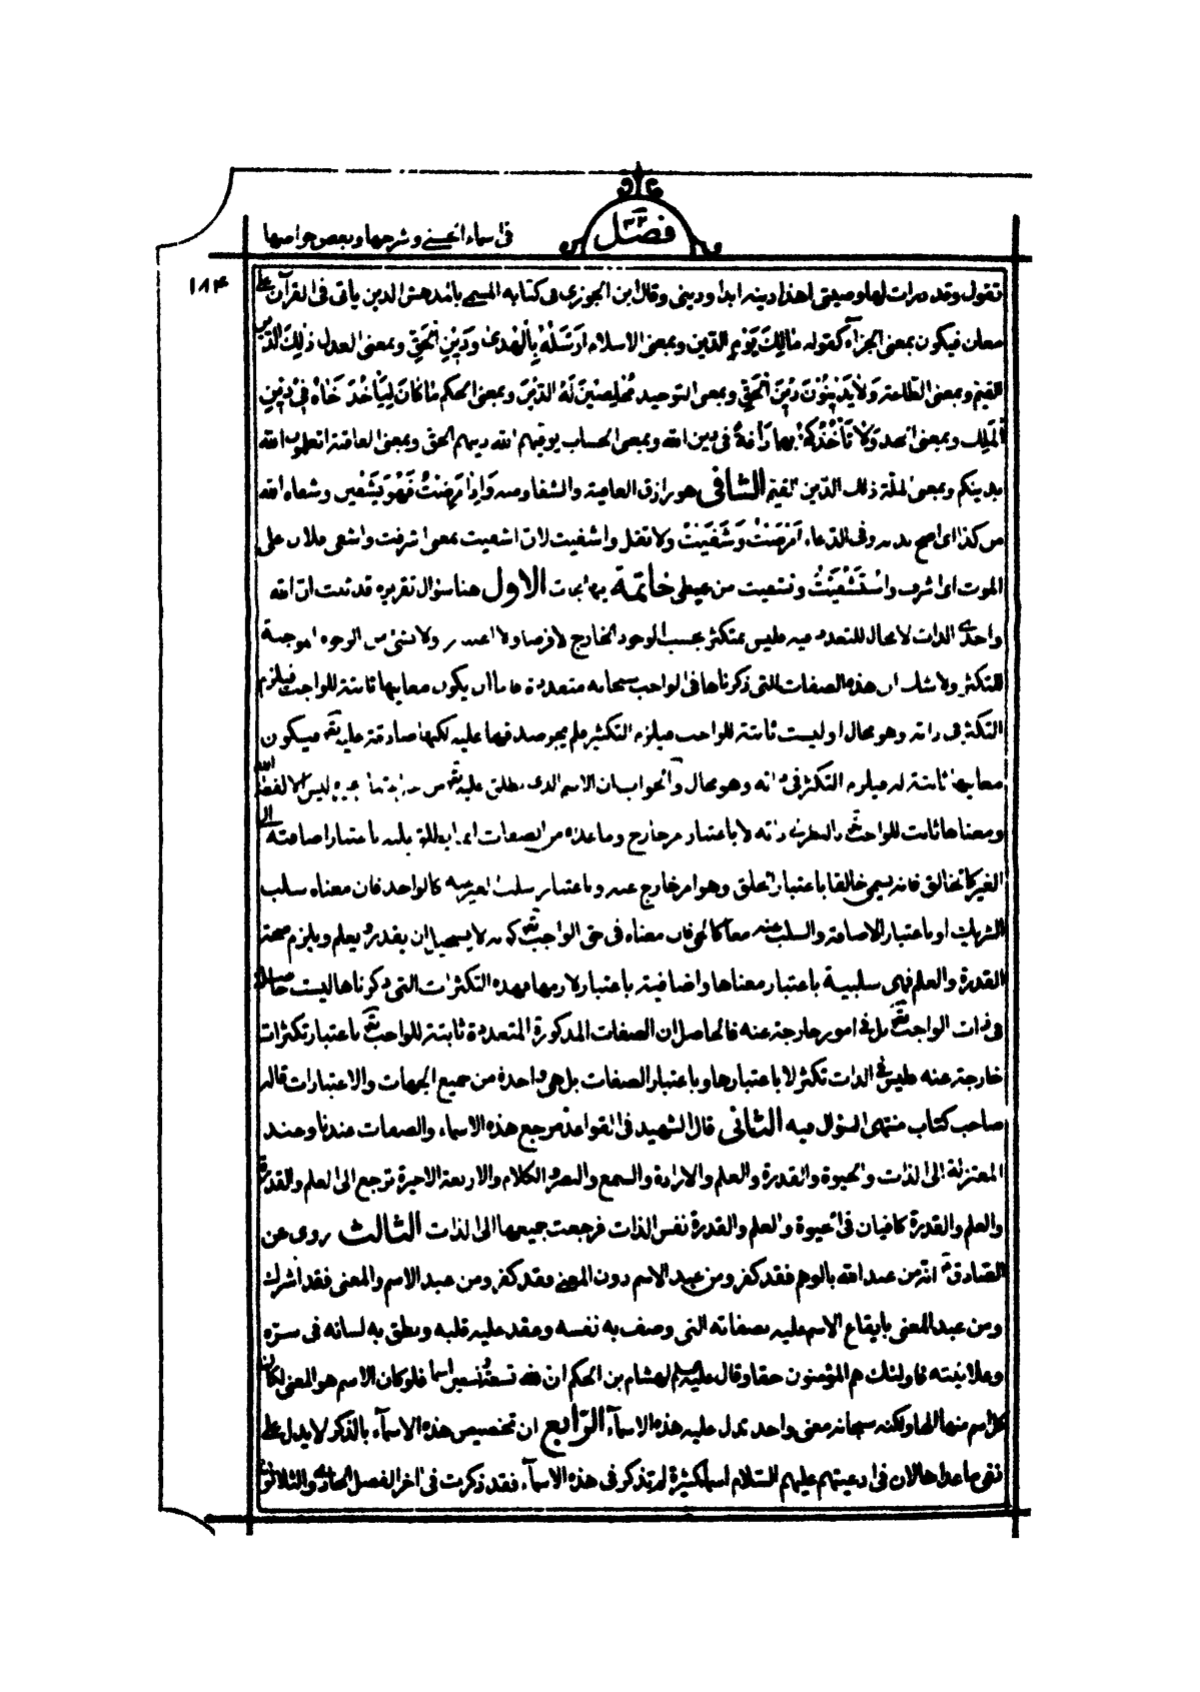 فصل ٣٢
في اسماء الحسنى وشرحها وبعض خواصها
١٨۴
تقول وقد درات لها وضينى اهذا دينه ابدا وديني وقال ابن الجوزي في كتابه المسمى بالمدهش الدين ياتى في القرآن على
معان فيكون بمعنى الجزآء كقوله مالِكِ يَوْمِ الدّين وبمعنى الاسلام اَرْسَلَهُ بِالْهُدىٰ وَدِيْنِ الْحَقِّ وبمعنى العدل ذٰلِكَ الدّين
القيم وبمعنى الطاعة وَلاٰ يَدِيْنُوْنَ دِيْنَ الْحَقِّ وبمعنى التوحيد مُخْلِصِيْنَ لَهُ الدّيْنَ وبمعنى الحكم مٰا كٰانَ لِيَأْخُذَ اَخٰاهُ فِيْ دِيْنِ
الْمَلِك وبمعنى الحد وَلاٰ تَأْخُذْكُمْ بِهِمٰا رَأْفَةٌ فى دين الله وبمعنى الحساب يوفيهم الله دينهم الحق وبمعنى العاقبة اتعلمون الله
بدينكم وبمعنى الملة ذلك الدّين القيم الشّافى هو رازق العافية والشفا ومنه وَاِذٰا مَرِضْتُ فَهُوَ يَشْفين وشفاه الله
من كذا اى اصح بدنه وفى الدّعاء اَمْرَضْتَ وَشَفَيْتَ ولا تقل واشفيت لان اشفيت بمعنى اشرفت واشفى فلان على
الموت اى اشرف واسْتَشْفَيْتُ وتشفيت من غيظى خاتمة فيها ابحاث الاول هنا سؤال تقريره قد ثبت ان الله
واحدى الذات لا مجال للتعدد فيه فليس بمتكثر بحسب الوجود الخارج لا فرضا ولا اعتبارا ولا بشئ من الوجوه الموجبة
للتكثر ولا شك ان هذه الصفات التى ذكرناها فى الواجب سبحانه متعددة فاما ان يكون معانيها ثابتة للواجب فيلزم
التكثر فى ذاته وهو محال او ليست ثابتة للواجب فيلزم التكثير فلم يجز صدقها عليه لكنها صادقة عليه تع فيكون
معانيها ثابتة له فيلزم التكثر فى ذاته وهو محال والجواب ان الاسم الذى يطلق عليه تع من غير ليس الا لفظ الله
ومعناها ثابت للواجب تع بالنظر الى ذاته لا باعتبار امر خارج وما عداه من الصفات انما يطلق عليه باعتبار اضافته الى
الغير كالخالق فانه يسمى خالقا باعتبار الخلق وهو امر خارج عنه وباعتبار سلب الغير عنه كالواحد فان معناه سلب
الشريك او باعتبار الاضافة والسلب عنه معا كالحى فان معناه فى حق الواجب تع كونه لا يستحيل ان يقدر ويعلم ويلزم صحة
القدرة والعلم فهى سلبية باعتبار معناها واضافية باعتبار لازمها فهذه التكثرات التى ذكرناها ليست حاصلة
فى ذات الواجب تع بل فى امور خارجة عنه فالحاصل ان الصفات المذكورة المتعددة ثابتة للواجب تع باعتبار تكثرات
خارجة عنه فليس فى الذات تكثر لا باعتبارها وباعتبار الصفات بل هى واحدة من جميع الجهات والاعتبارات قاله
صاحب كتاب منتهى السؤل فيه الثانى قال الشهيد فى القواعد مرجع هذه الاسماء والصفات عندنا وعند
المعتزلة الى الذات والحيوة والقدرة والعلم والارادة والسمع والبصر والكلام والاربعة الاخيرة ترجع الى العلم والقدرة
والعلم والقدرة كافيان فى الحيوة والعلم والقدرة نفس الذات فرجعت جميعها الى الذات الثالث روى عن
الصّادق ع انه من عبد الله بالوهم فقد كفر ومن عبد الاسم دون المعنى فقد كفر ومن عبد الاسم والمعنى فقد اشرك
ومن عبد المعنى بايقاع الاسم عليه بصفاته التى وصف به نفسه وعقد عليه قلبه ونطق به لسانه فى سرّه
وعلانيته فاولئك هم المؤمنون حقا وقال عليه السلم لهشام بن الحكم ان لله تسعة وتسعين اسما فلو كان الاسم هو المعنى لكان
كل اسم منها الها ولكنه سبحانه معنى واحد تدل عليه هذه الاسمآء الرّابع ان تخصيص هذه الاسمآء بالذكر لا يدل على
نفى ما عداها لان فى ادعيتهم عليهم السّلام اسماء كثيرة لم تذكر فى هذه الاسمآء فقد ذكرت فى آخر الفصل الحادى والثلاثون